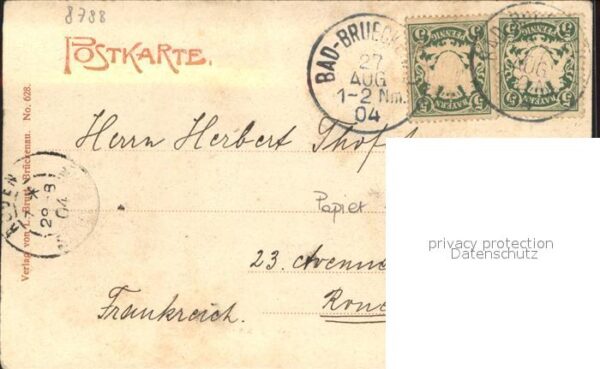 8788
POSTKARTE.
BAD-BRUECK
27
AUG
1-2 Nm.
04
5 PFENNIG 5
BAYERN
5 PFENNIG 5
BAYERN
Herrn Herbert
Papier
23. Avenue
Frankreich.
ROUEN
04
Verlag von
Brückenau. No. 628.
privacy protection
Datenschutz